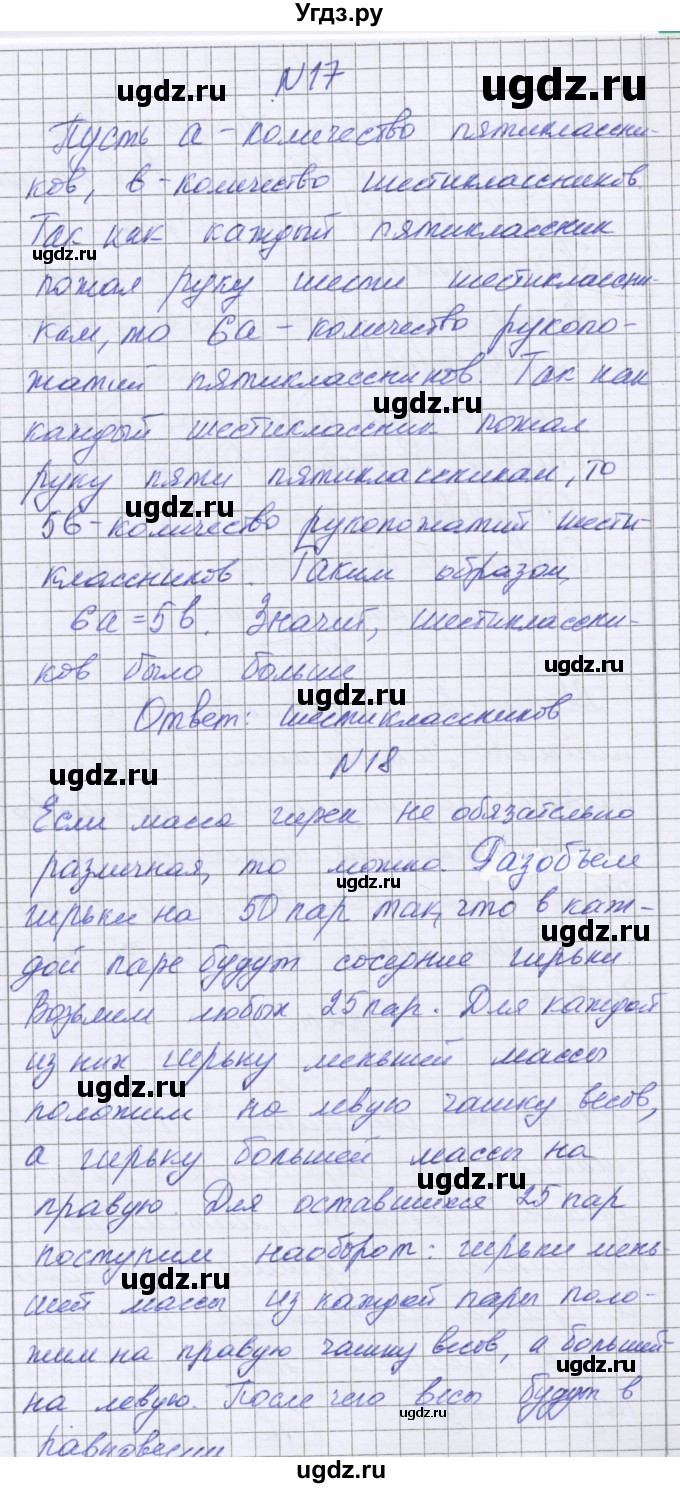 Угдз.ру
ugdz.ru ugdz.ru
N17
Пусть а - количество пятиклассни-
ков, в - количество шестиклассников
Так как каждый пятиклассник
ugdz.ru
пожал руку шести шестиклассни-
кам, то 6а - количество рукопо-
жатий пятиклассников. Так как
ugdz.ru
каждый шестиклассник пожал
руку пяти пятиклассникам, то
ugdz.ru
5в - количество рукопожатий шести-
классников. Таким образом,
6а = 5в. Значит, шестиклассни-
ков было больше
ugdz.ru
ugdz.ru
Ответ: шестиклассников
N18
ugdz.ru
Если масса гирек не обязательно
различная, то можно. Разобъем
ugdz.ru
гирьки на 50 пар так, что в каж-
ugdz.ru
дой паре будут соседние гирьки.
Возьмем любых 25 пар. Для каждой
из них гирьку меньшей массы
ugdz.ru
положим на левую чашку весов,
а гирьку большей массы на
ugdz.ru
правую Для оставшихся 25 пар
поступим наоборот: гирьки мень-
ugdz.ru
шей массы из каждой пары поло-
жим на правую чашку весов, а большей-
ugdz.ru
на левую. После чего весы будут в
ugdz.ru
равновесии
ugdz.ru